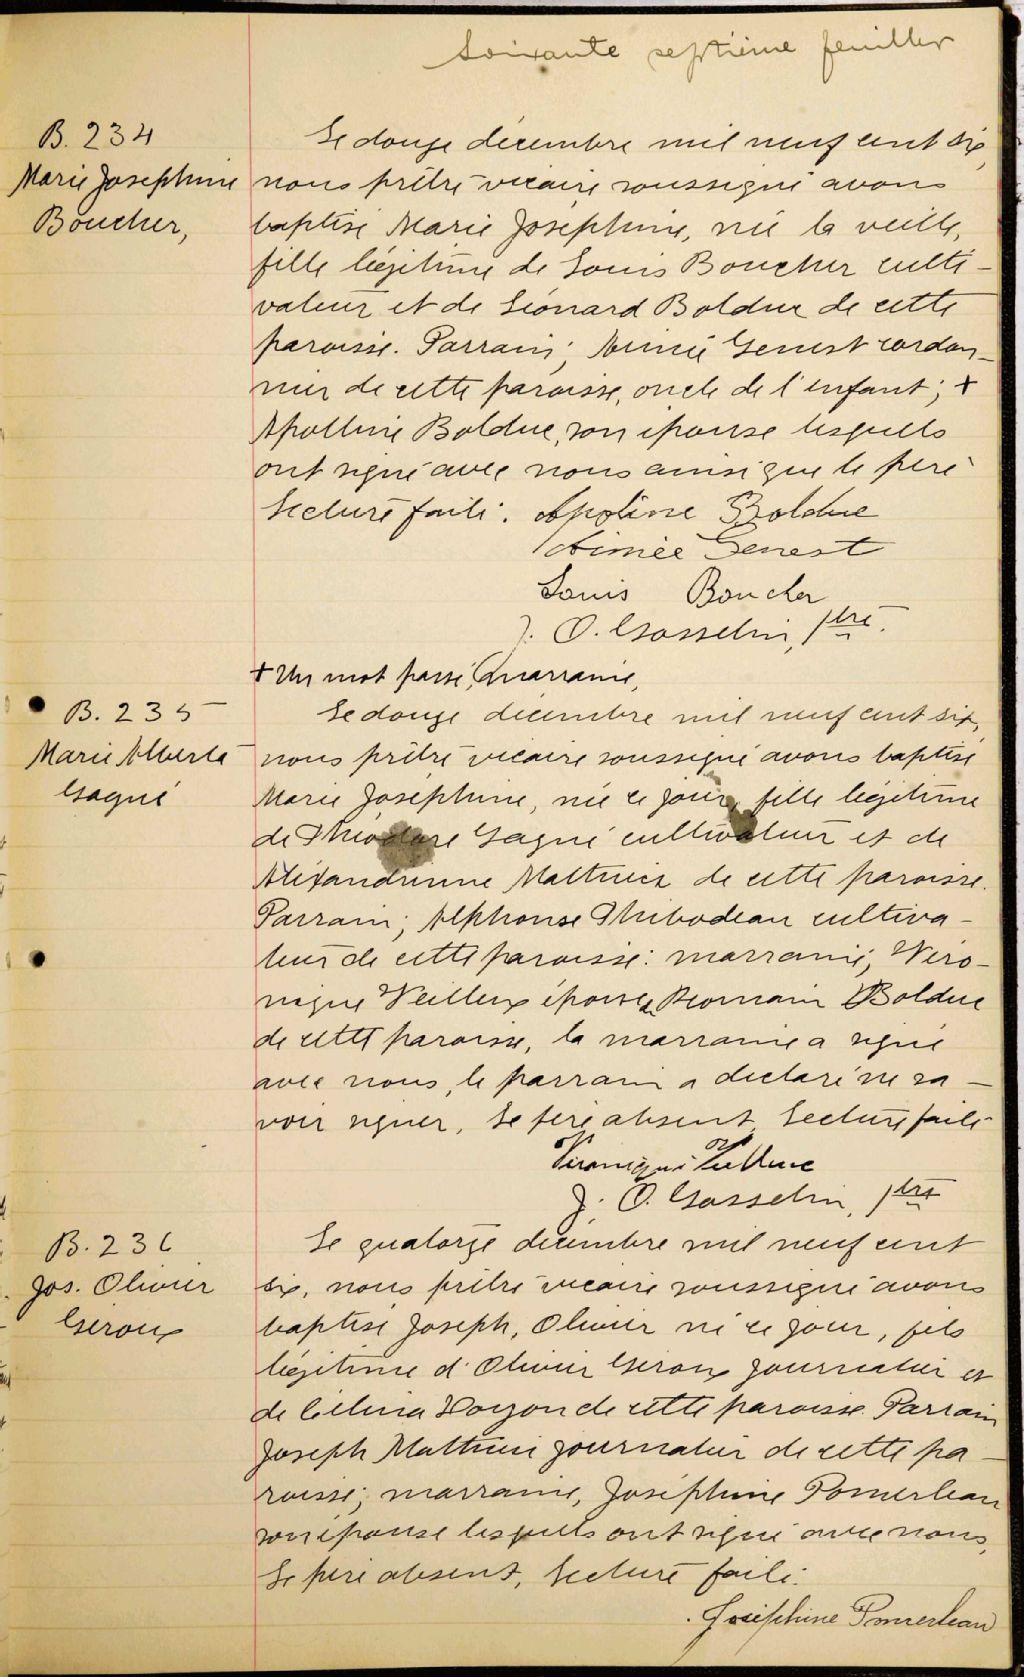 Soixante septième feuillet
B. 234
Marie Joséphine
Boucher,
Le douze décembre mil neuf cent six,
nous prêtre vicaire soussigné avons
baptisé Marie Joséphine, née la veille,
fille légitime de Louis Boucher culti-
vateur et de Léonard Bolduc de cette
paroisse. Parrain; Aimé Genest cordon-
nier de cette paroisse, oncle de l'enfant; +
Apolline Bolduc, son épouse lesquels
ont signé avec nous ainsi que le père
Lecture faite.
Apoline Bolduc
Aimée Genest
Louis Boucher
J. O. Gosselin, Ptre.
+ Un mot passé, marraine,
B. 235
Marie Alberta
Gagné
Le douze décembre mil neuf cent six,
nous prêtre vicaire soussigné avons baptisé
Marie Joséphine, née ce jour, fille légitime
de Théodore Gagné cultivateur et de
Alexandrienne Mathieu de cette paroisse.
Parrain; Alphonse Thibodeau cultiva-
teur de cette paroisse: marraine, Véro-
nique Veilleux épouse de Romain Bolduc
de cette paroisse, la marraine a signé
avec nous, le parrain a déclaré ne sa-
voir signer, Le père absent, Lecture faite
Véronique
J. O. Gosselin, Ptre
B. 236
Jos. Olivier
Giroux
Le quatorze décembre mil neuf cent
six, nous prêtre vicaire soussigné avons
baptisé Joseph, Olivier né ce jour, fils
légitime d'Olivier Giroux journalier et
de Célina Doyon de cette paroisse Parrain
Joseph Mathieu journalier de cette pa-
roisse; marraine, Joséphine Pomerleau
son épouse lesquels ont signé avec nous,
Le père absent, Lecture faite.
Joséphine Pomerleau